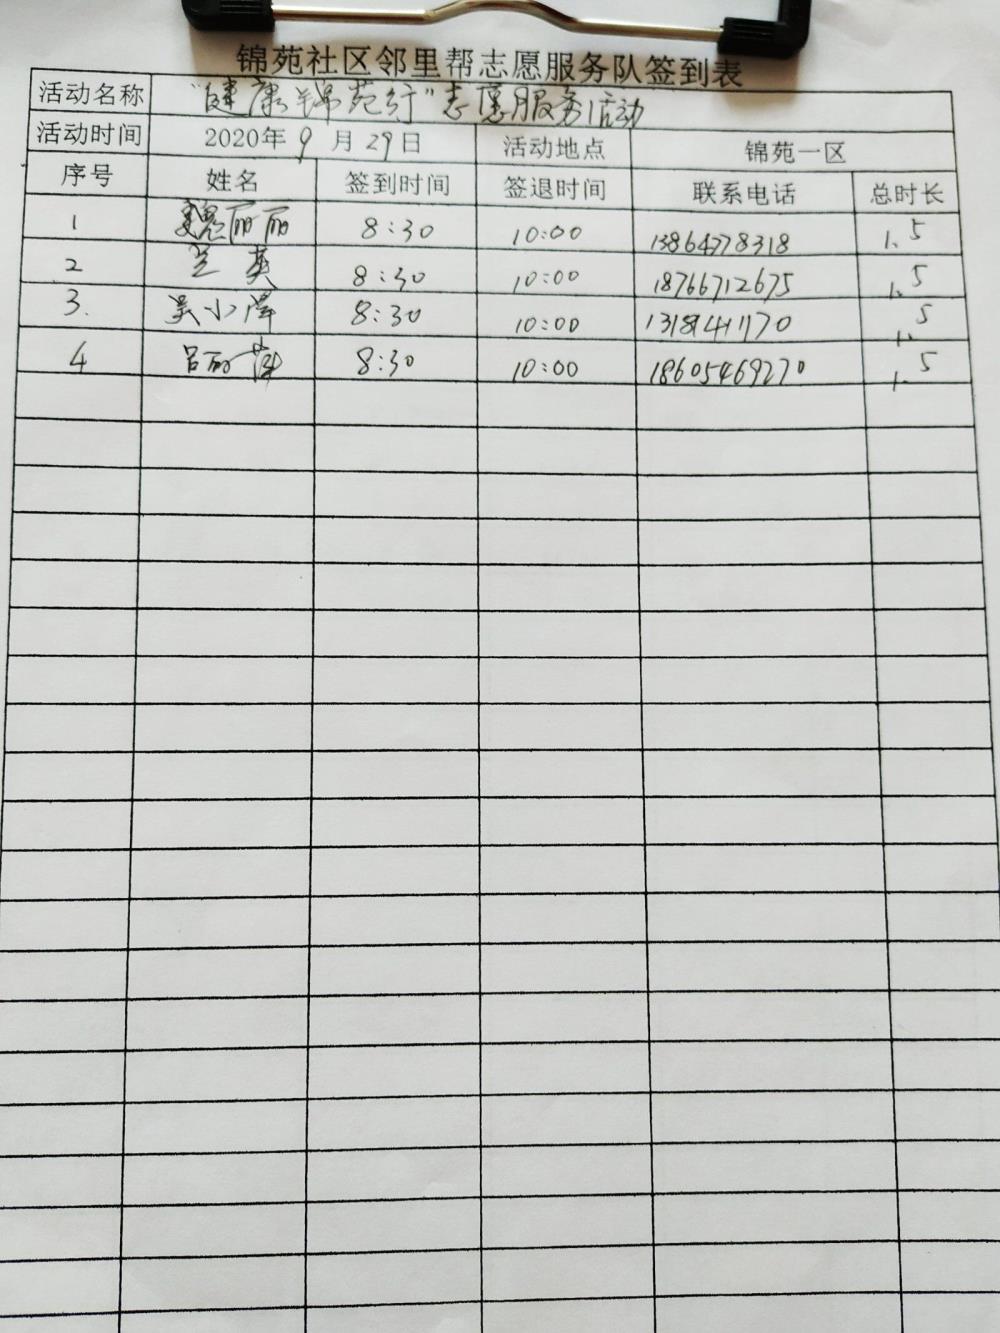 锦苑社区邻里帮志愿服务队签到表
活动名称 "健康锦苑行"志愿服务活动
活动时间 2020年9月29日 活动地点 锦苑一区
序号 姓名 签到时间 签退时间 联系电话 总时长
1 魏丽丽 8:30 10:00 13864778318 1.5
2 兰英 8:30 10:00 18766712675 1.5
3. 吴小泽 8:30 10:00 1.5
4 吕丽萍 8:30 10:00 18605469270 1.5